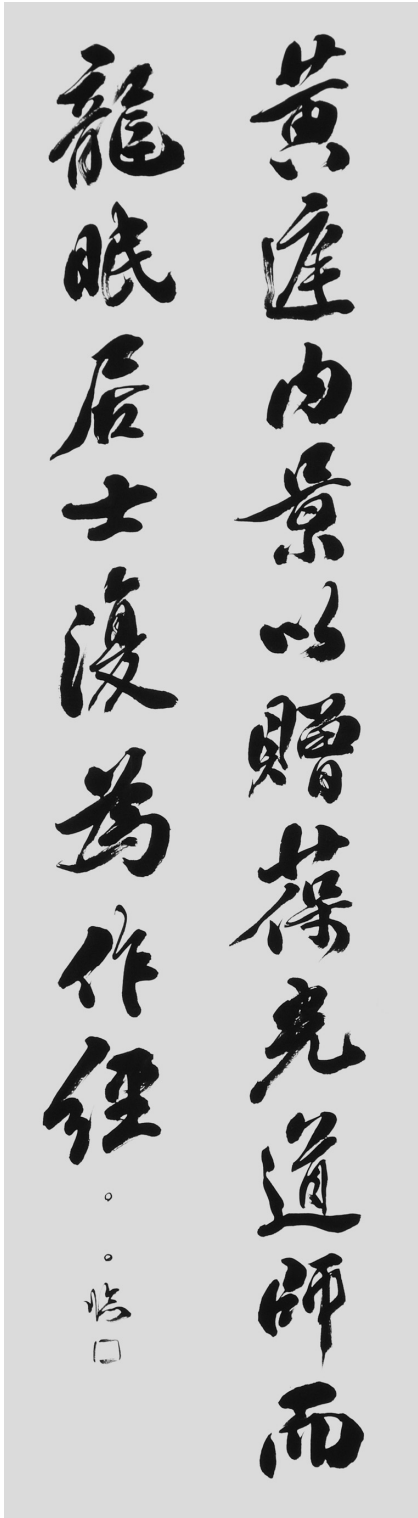 黄庭内景以贈葆光道師而
龍眠居士復為作經
。。臨